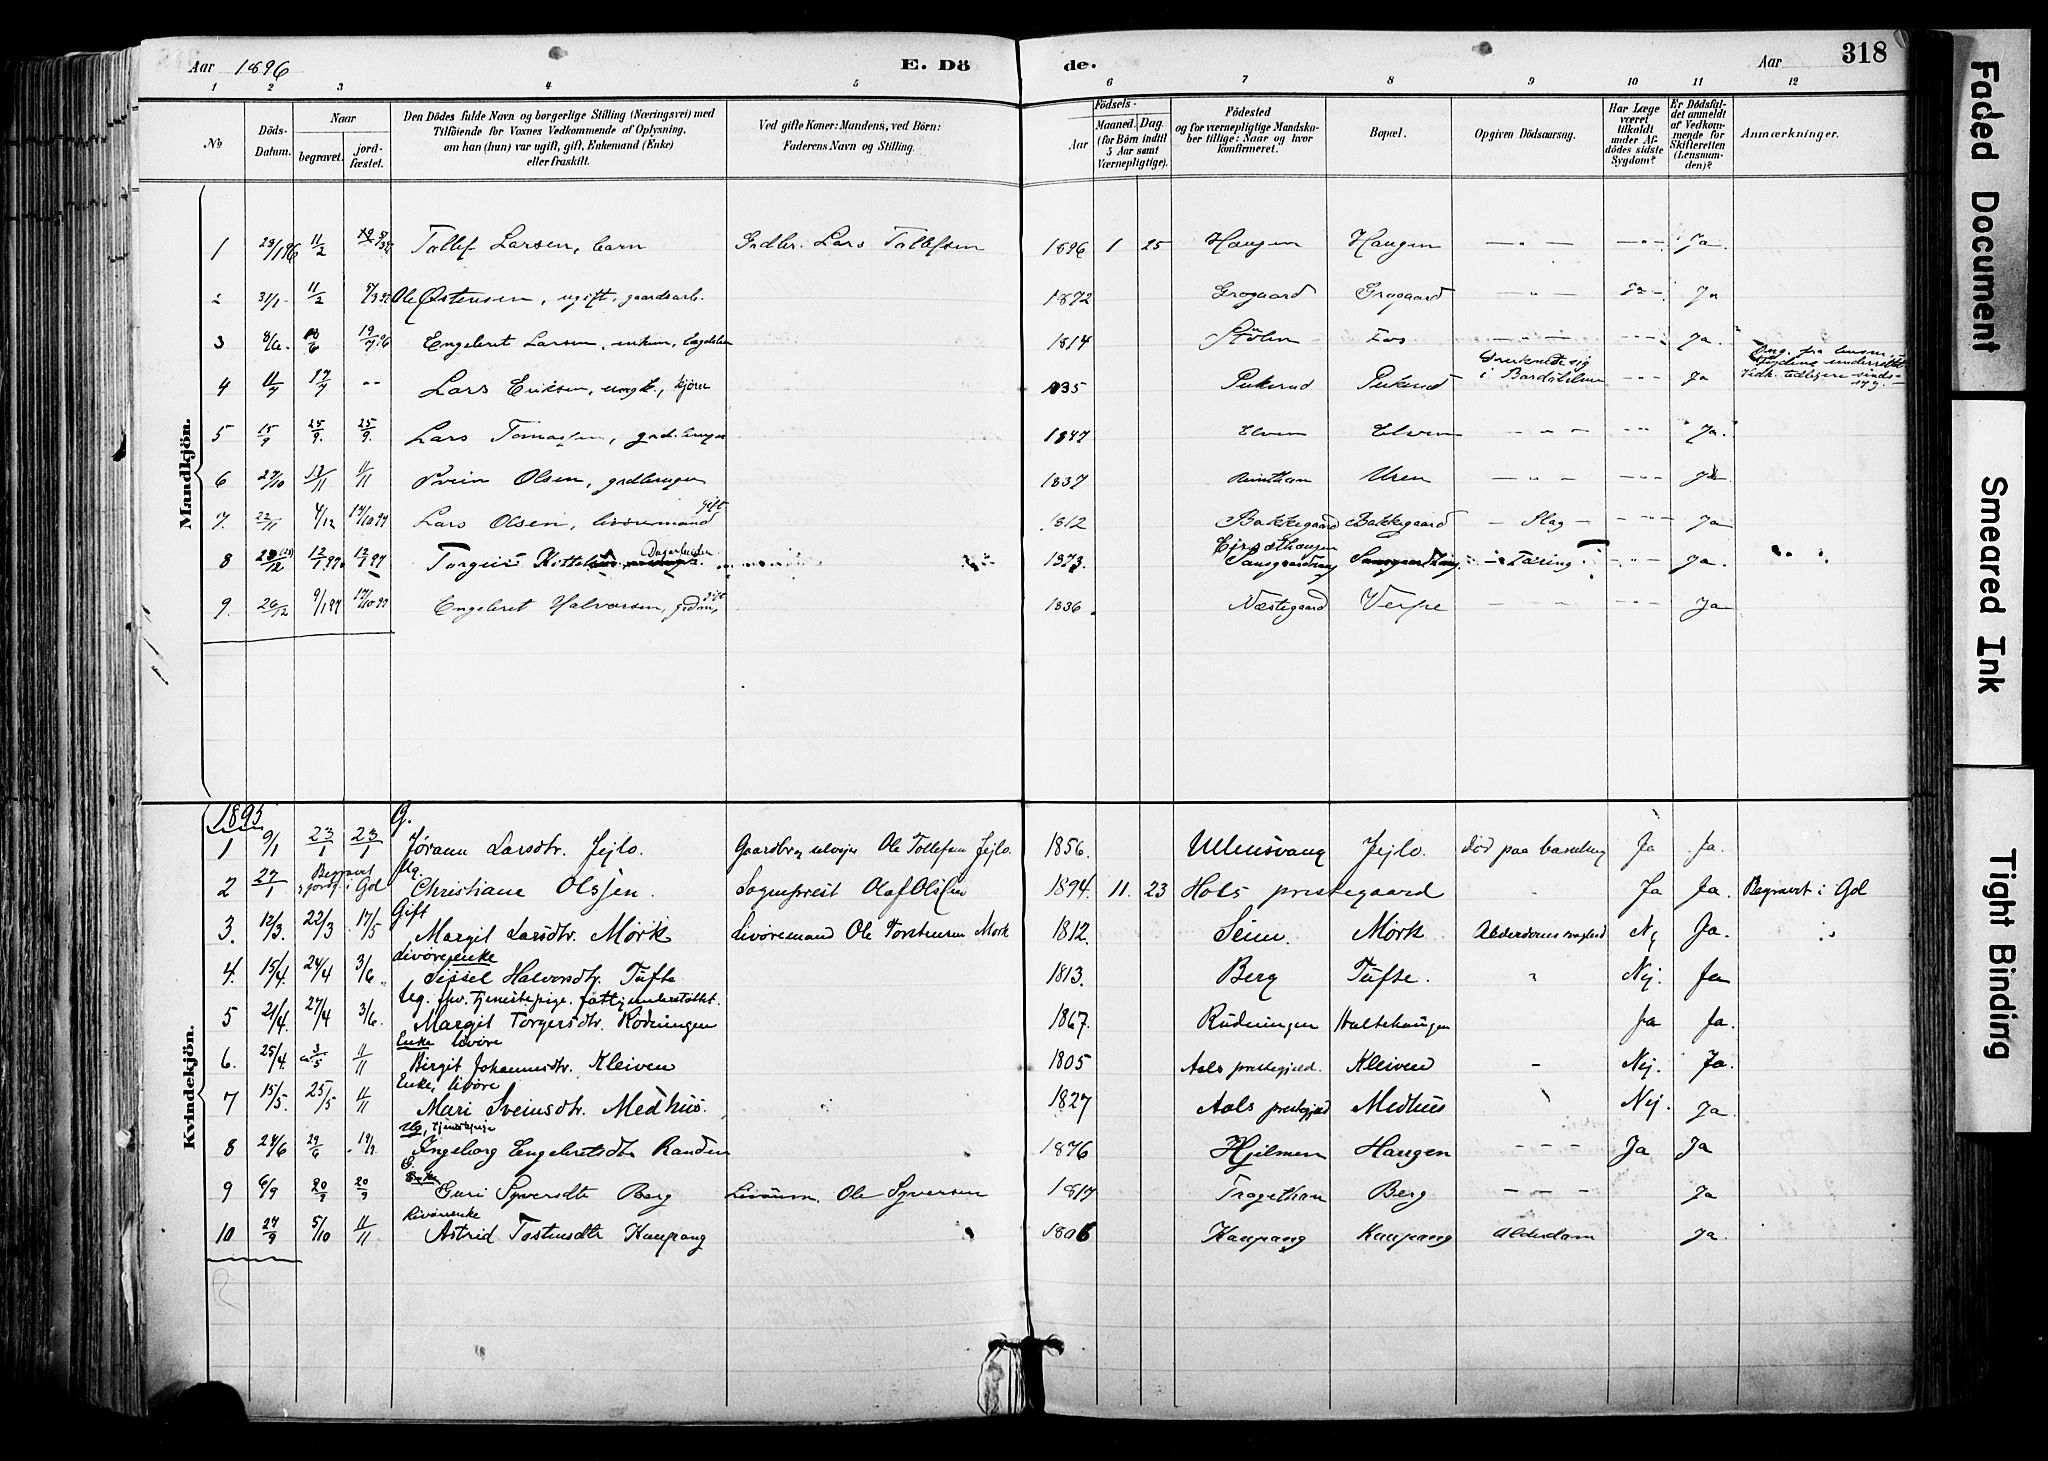 Aar 1896 E. Dö de. Aar 318
1 2 3 4 5 6 7 8 9 10 11 12
No Döds-Datum. Naar begravet. jord-fæstet. Den Dödes fulde Navn og borgerlige Stilling (Næringsvei) med Tilföiende for Voxnes Vedkommende af Oplysning, om han (hun) var ugift, gift, Enkemand (Enke) eller fraskilt. Ved gifte Koner: Mandens, ved Börn: Faderens Navn og Stilling. Födsels- Aar Maaned. Dag. (for Börn indtil 5 Aar samt Værnepligtige). Födested og for værnepligtige Mandskaber tillige: Naar og hvor konfirmeret. Bopæl. Opgiven Dödsaarsag. Har Læge været tilkaldt under Afdödes sidste Sygdom? Er Dödsfaldet anmeldt af Vedkommende for Skifteretten (Lensmanden)? Anmærkninger.
Mandkjön.
1 11/2 Tollef Larsen, barn Grdbr. Lars Tollefsen 1896 1 25 Haugen Haugen — " — Ja
2 31/1 11/2 Ole Østensen, ugift, gaardsarb. 1872 Grøgaard Grøgaard — " — Ja
3 8/6 19/7 96 Engebret Larsen, 1814 Fos — " — Ja
4 11/7 17/7 " Lars Eriksen, ungk., kjører 1835 Pukerud Pukerud Druknede sig i Bardøla Ja
5 15/9 25/9. 25/9. Lars 1847 Elven Elven — " — Ja
6 27/10 11/11 Svein Olsen, grdbruger 1837 Uren — " — Ja
7. 22/11 4/12 14/10 97 Lars Olsen, livøremand gift 1812 Bakkegaard Bakkegaard — Slag — Ja
8 12/1 97. 12/1 97 Torgeir 1873. Tæring Ja.
9. 26/12 9/1 97 14/10 97 Engebret Halvorsen, grdm, gift 1836 Næstegaard — " — Ja
Kvindekjön.
1895
1 9/1 23/1 23/1 G. Jørann Larsdtr. Jejlo. Ole Tollefsen Jejlo. 1856. Ullensvang Jejlo. Død paa barselseng Ja Ja.
2 27/1 Begravet i Gol Ug. Christiane Olssen. Sogneprest Olaf Olssen 1894 11. 23 Hols prestegaard Ja Ja. Begravet i Gol
3. 12/3. 22/3 17/5 Gift Margit Larsdtr. Mørk Livøremand Ole Torstensen Mørk 1812. Seim. Mørk Ja.
4. 15/4. 24/4 3/6 Livøreenke Sissel Halvorsdtr. Tufte 1813. Berg Tufte. " Nej. Ja
5 21/4. 27/4 3/6. Ug. fhv. tjenestepige. fattigunderstøttet. Margit Torgersdtr. Rødningen 1867. Rudningen Ja Ja.
6. 25/4. 3/5 11/11 Enke livøre Birgit Johannesdtr. Kleiven 1805 Aals prestegjeld. Kleiven - Nej. Ja.
7 15/5. 25/5 11/11 Enke, livøre Mari Sveinsdtr. Medhus. 1827 Aals prestegjeld Medhus Nej. Ja
8 24/6 29/6 Ug, tjenestepige Ingeborg Engebretsdtr Randen 1876 Hjelmen Haugen - - - Ja Ja
9 6/9 20/9 20/9 G. Guri Syversdtr Berg Livørem. Ole Syversen 1817 Berg - - - Ja
10 27/9 5/10 11/11 Livøreenke Astrid Tostensdtr Kaupang 1806 Kaupang Kaupang Alderdom Ja
Faded Document
Smeared Ink
Tight Binding